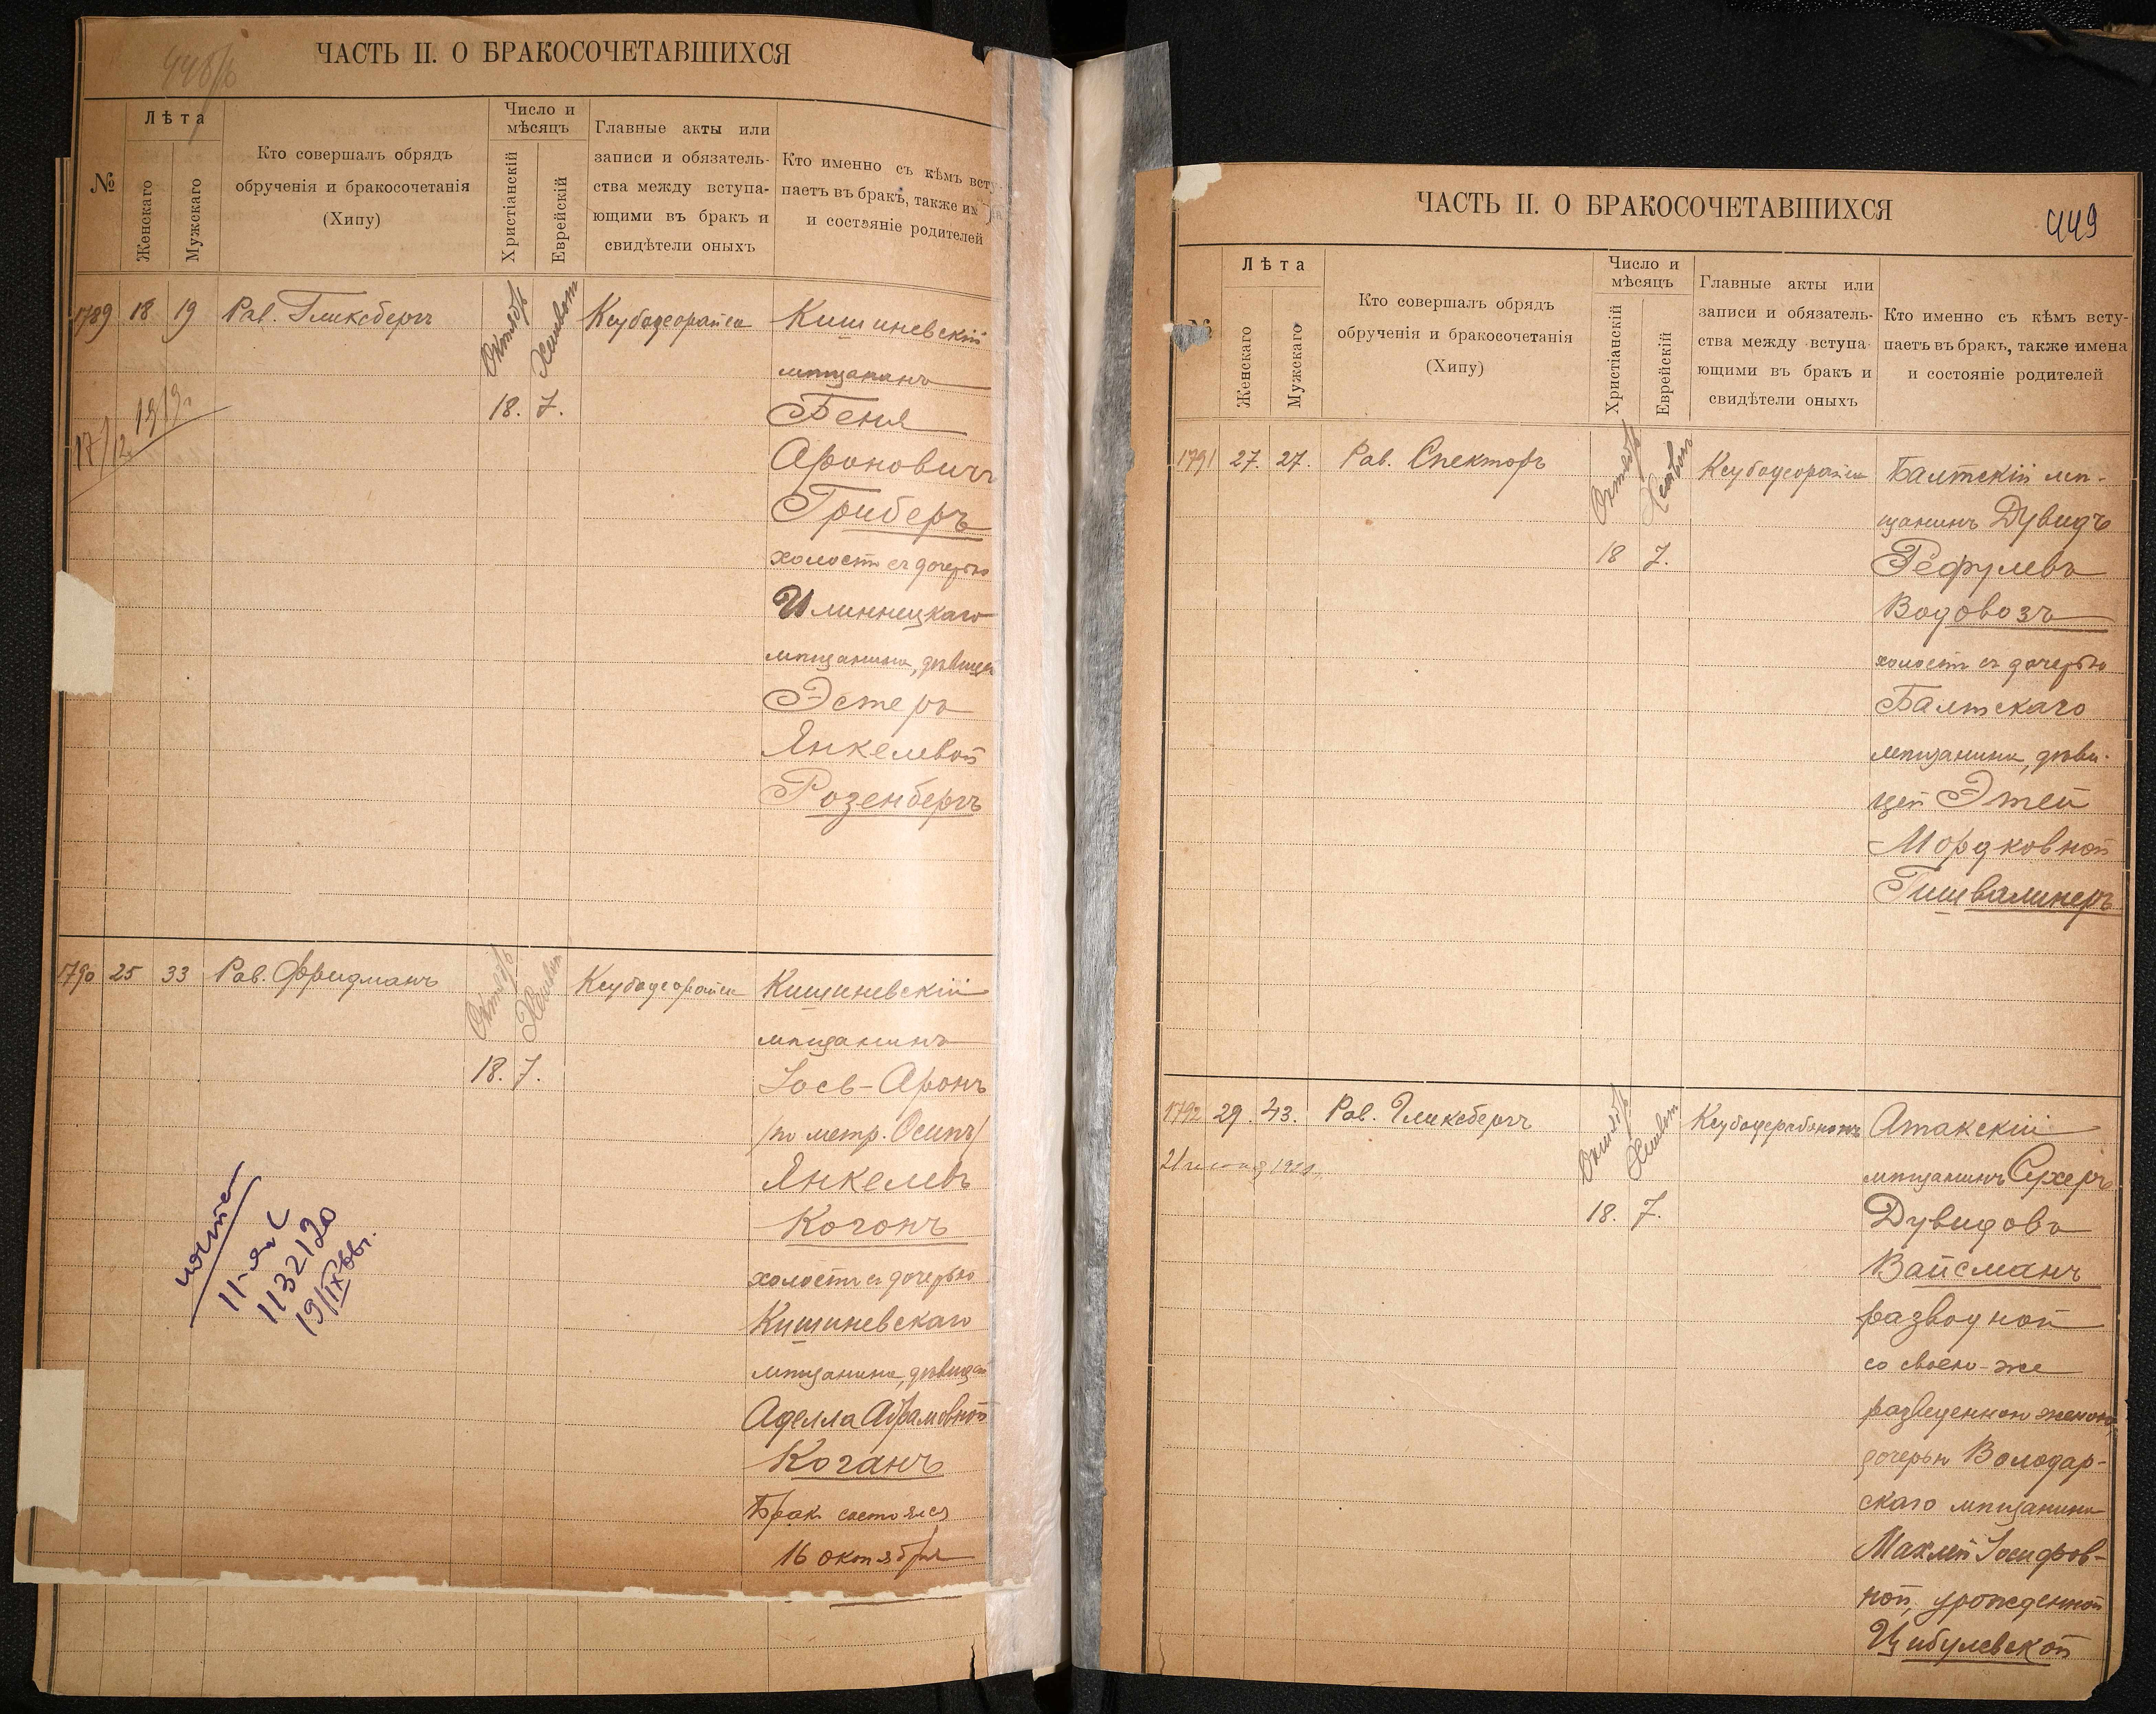 448/b
ЧАСТЬ II. О БРАКОСОЧЕТАВШИХСЯ
№
Лѣта
Женскаго
Мужскаго
Кто совершалъ обрядъ
обрученія и бракосочетанія
(Хипу)
Число и
мѣсяцъ
Христіанскій
Еврейскій
Главные акты или
записи и обязатель-
ства между вступа-
ющими въ бракъ и
свидѣтели оныхъ
Кто именно съ кѣмъ всту
паетъ въ бракъ, также им
и состояніе родителей
1789 18 19 Рав. Гликсбергъ Октябрь Хешвон Ксубодеорайса Кишиневскій
мѣщанинъ
18. 7. Беня
17/12 1919г.
Ароновичъ
Гриберъ
холостъ съ дочерью
Илиннецкаго
мѣщанина, дѣвицей
Эстеръ
Янкелевой
Розенбергъ
1790 25 33 Рав. Фридманъ Октябрь Хешвон Ксубодеорайса Кишиневскій
мѣщанинъ
18. 7. Іось-Аронъ
/по метр. Осипъ/
Янкелевъ
Когонъ
холостъ съ дочерью
Кишиневскаго
мѣщанина, дѣвицей
Аделла Абрамовной
Коганъ
Бракъ состоялся
16 октября
1132120
19/IX 66г.
ЧАСТЬ II. О БРАКОСОЧЕТАВШИХСЯ
449
№
Лѣта
Женскаго
Мужскаго
Кто совершалъ обрядъ
обрученія и бракосочетанія
(Хипу)
Число и
мѣсяцъ
Христіанскій
Еврейскій
Главные акты или
записи и обязатель-
ства между вступа
ющими въ бракъ и
свидѣтели оныхъ
Кто именно съ кѣмъ всту-
паетъ въ бракъ, также имена
и состояніе родителей
1791 27. 27. Рав. Спекторъ Октябрь Хешвон Ксубодеорайса Балтскій мѣ-
щанинъ Дувидъ
18 7. Рефулевъ
Водовозъ
холостъ съ дочерью
Балтскаго
мѣщанина, дѣви-
цей Этей
Мордковной
Гишвалинеръ
1792 29. 43. Рав. Гликсбергъ Октябрь Хешвон Ксубодерабононъ Атакскій
мѣщанинъ Схеръ
18. 7. Дувидовъ
Вайсманъ
разводной
со своею-же
разведенною женою,
дочерью Володар-
скаго мѣщанина
Махлей Іосифов-
ной, урожденной
Цибулевской